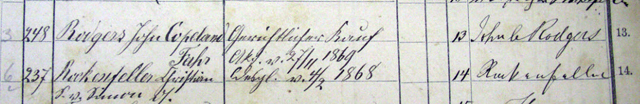 3 248 Rodgers John Copeland Gerichtlicher Kauf 13 John C Rodgers 13.
Fuhs Urk. v. 27/11 1869
6 237 Rockenfeller Christian Desgl. v. 4/2 1868 14 Rockenfeller 14.
S. v. Simon